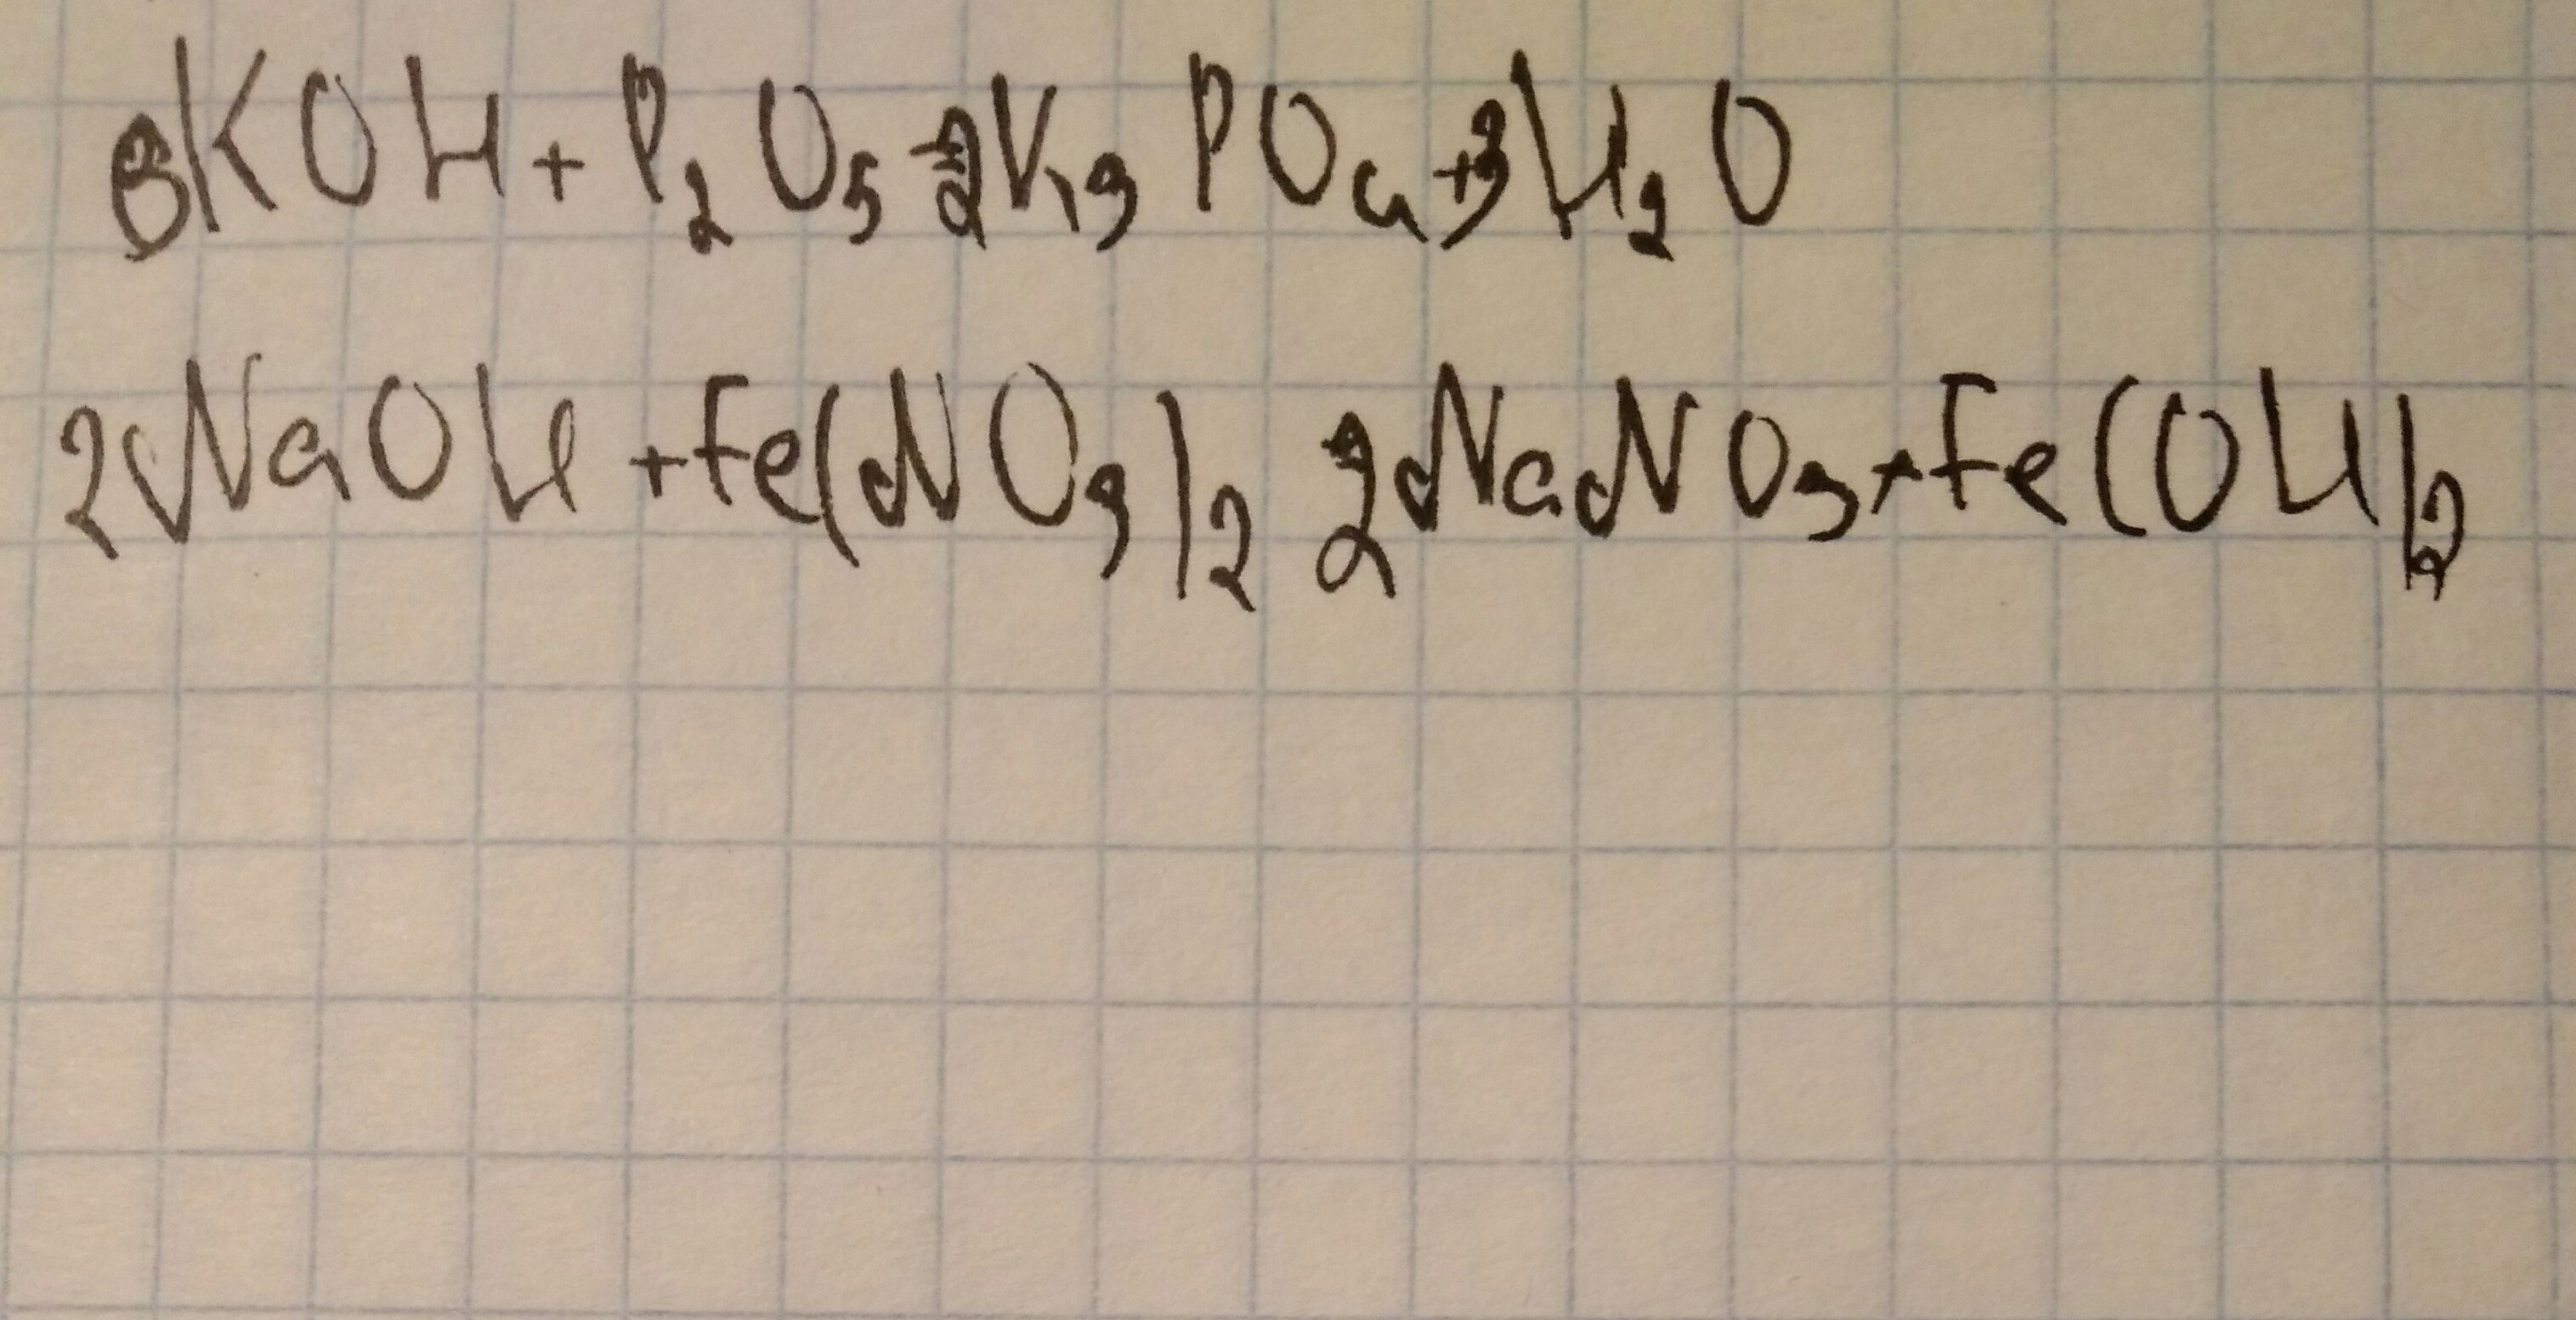 6KOH + P₂O₅ = 2K₃PO₄ + 3H₂O
2NaOH + Fe(NO₃)₂ = 2NaNO₃ + Fe(OH)₂